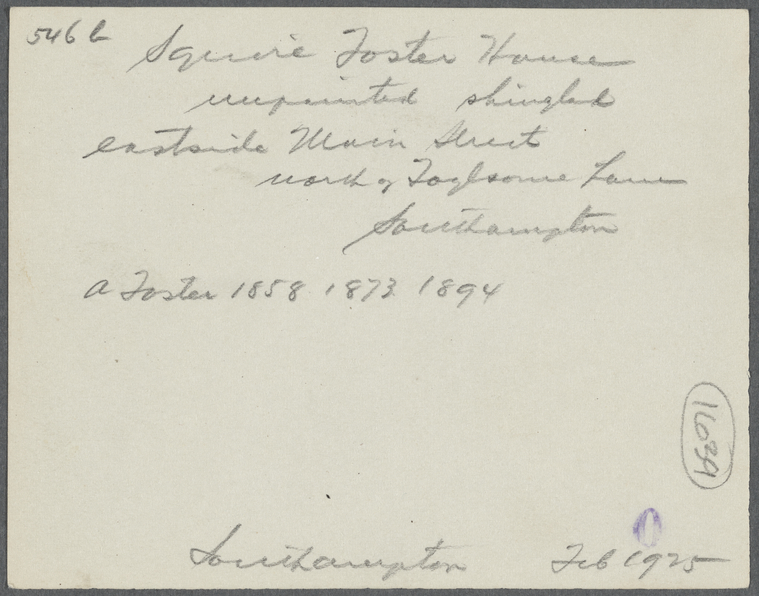 546 b
Squire Foster House
unpainted shingled
eastside Main Street
north of Toylsome Lane
Southampton
A Foster 1858 1873 1894
1639
0
Southampton Feb 1925